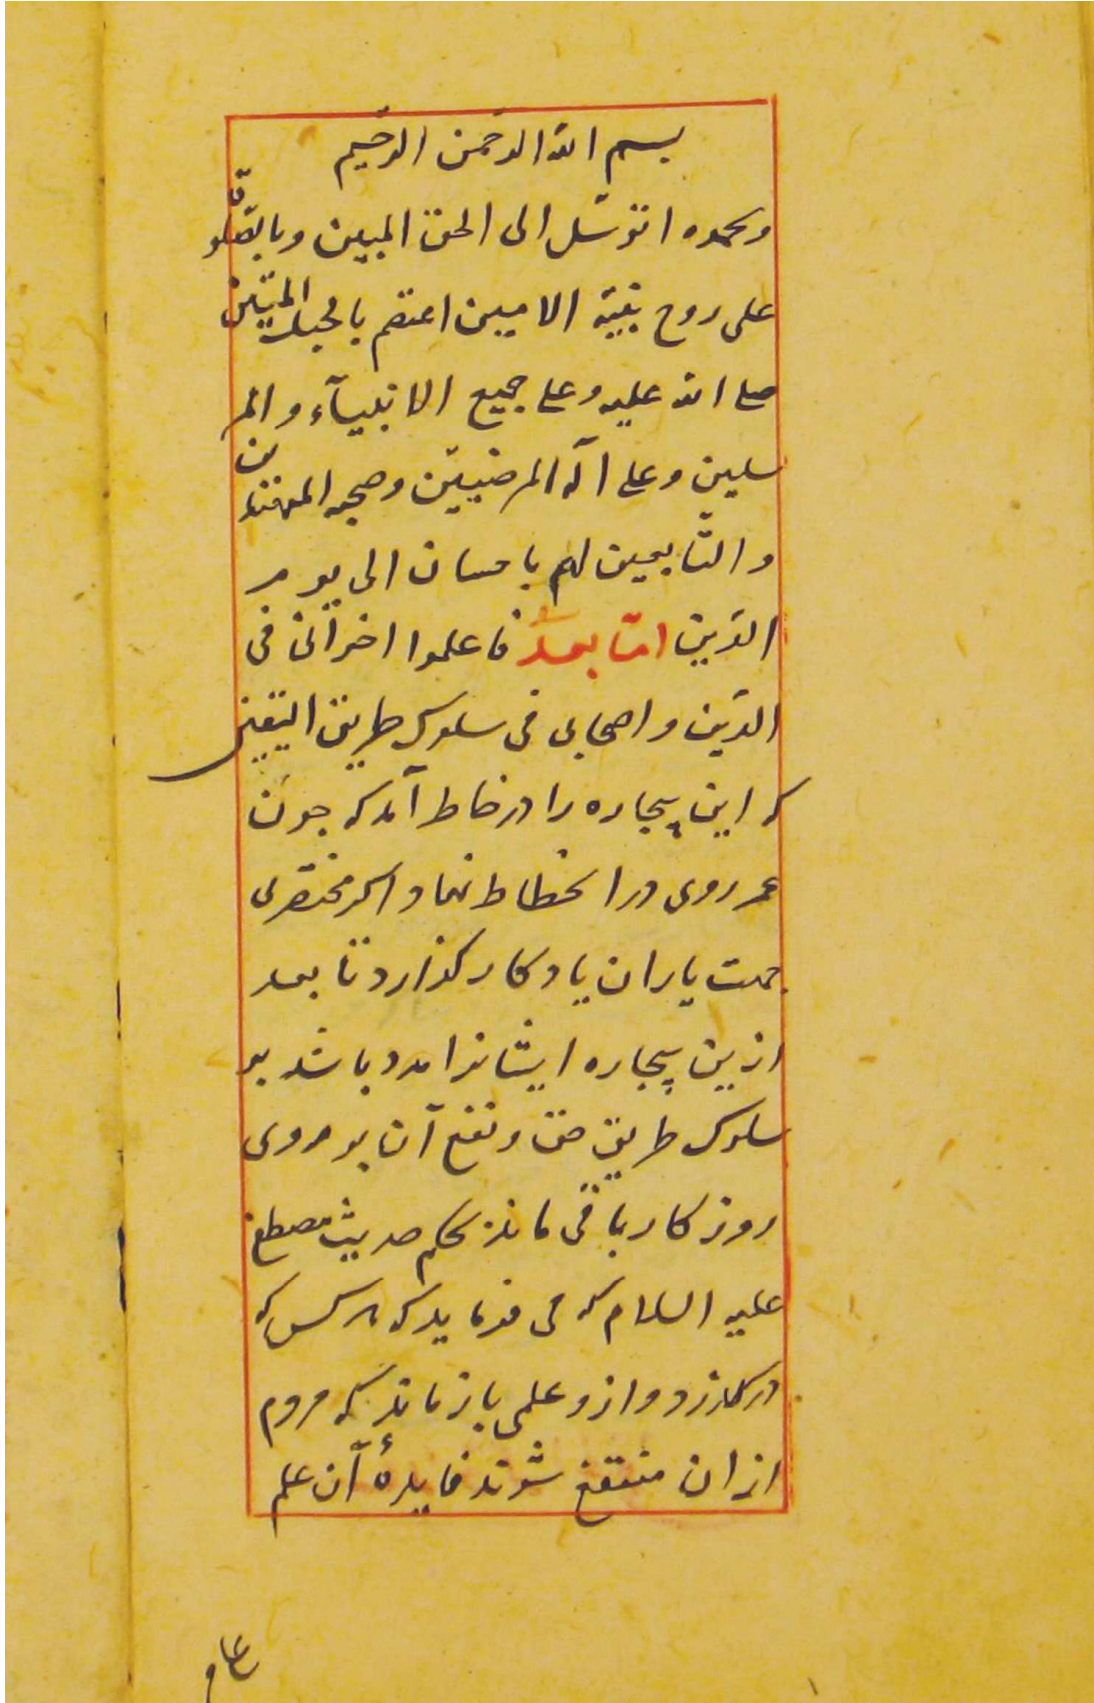 بسم الله الرحمن الرحیم
وبحمده اتوسّل الی الحق المبین وبالصّلوة
علی روح نبیّه الامین اعتصم بالحبل المتین
صلی الله علیه وعلی جمیع الانبیآء والمر
سلین وعلی آله المرضیّین وصحبه المهتدین
والتّابعین لهم باحسان الی یوم
الدّین امّا بعد فاعلموا اخوانی فی
الدّین واصحابی فی سلوک طریق الیقین
که این بیچاره را در خاطر آمد که چون
عمر روی در انحطاط نهاد اکر مختصری
جهت یاران یادکار کذارد تا بعد
ازین بیچاره ایشانرا مدد باشد بر
سلوک طریق حق ونفع آن بر روی
روزکار باقی ماند بحکم حدیث مصطفی
علیه السلام که می فرماید که هرکس که
درکذرد و ازو علمی باز ماند که مردم
ازان منتفع شوند فایدهٔ آن علم